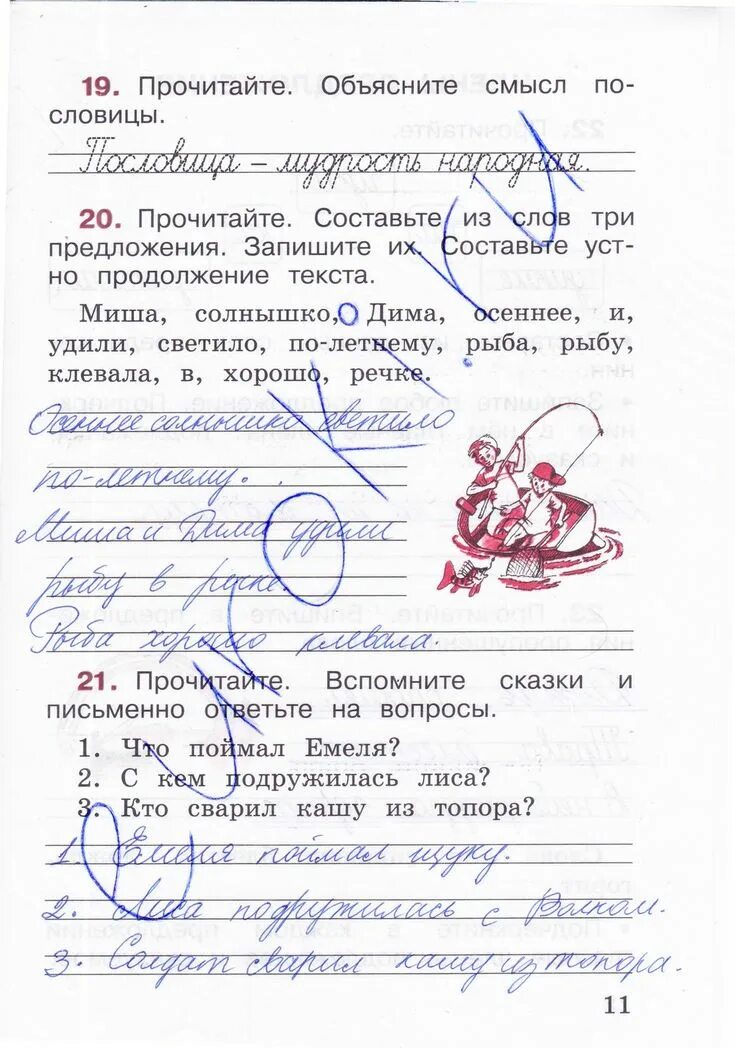 19. Прочитайте. Объясните смысл по-
словицы.
Пословица – мудрость народная.
20. Прочитайте. Составьте из слов три
предложения. Запишите их. Составьте уст-
но продолжение текста.
Миша, солнышко, Дима, осеннее, и,
удили, светило, по-летнему, рыба, рыбу,
клевала, в, хорошо, речке.
Осеннее солнышко светило
по-летнему.
Миша и Дима удили
рыбу в речке.
Рыба хорошо клевала.
21. Прочитайте. Вспомните сказки и
письменно ответьте на вопросы.
1. Что поймал Емеля?
2. С кем подружилась лиса?
3. Кто сварил кашу из топора?
1. Емеля поймал щуку.
2. Лиса подружилась с Волком.
3. Солдат сварил кашу из топора.
11